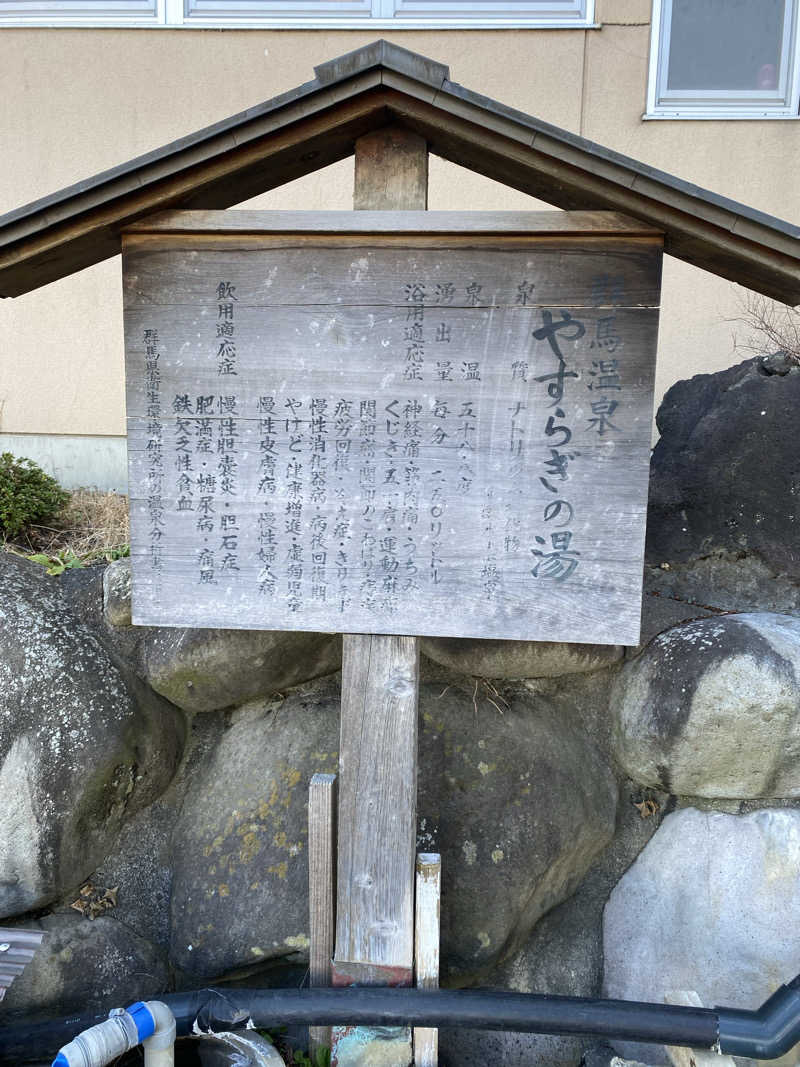 群馬温泉
やすらぎの湯
泉 質 ナトリウム 物
泉 温 五十八・八度
湧出量 毎分 二五〇リットル
浴用適応症 神経痛・筋肉痛・うちみ
くじき・五十肩・運動麻痺
関節痛・関節のこわばり・痔疾
疲労回復・冷え症・きりきず
慢性消化器病・病後回復期
やけど・健康増進・虚弱児童
慢性皮膚病・慢性婦人病
飲用適応症 慢性胆嚢炎・胆石症
肥満症・糖尿病・痛風
鉄欠乏性貧血
群馬県衛生環境研究所の温泉分析書